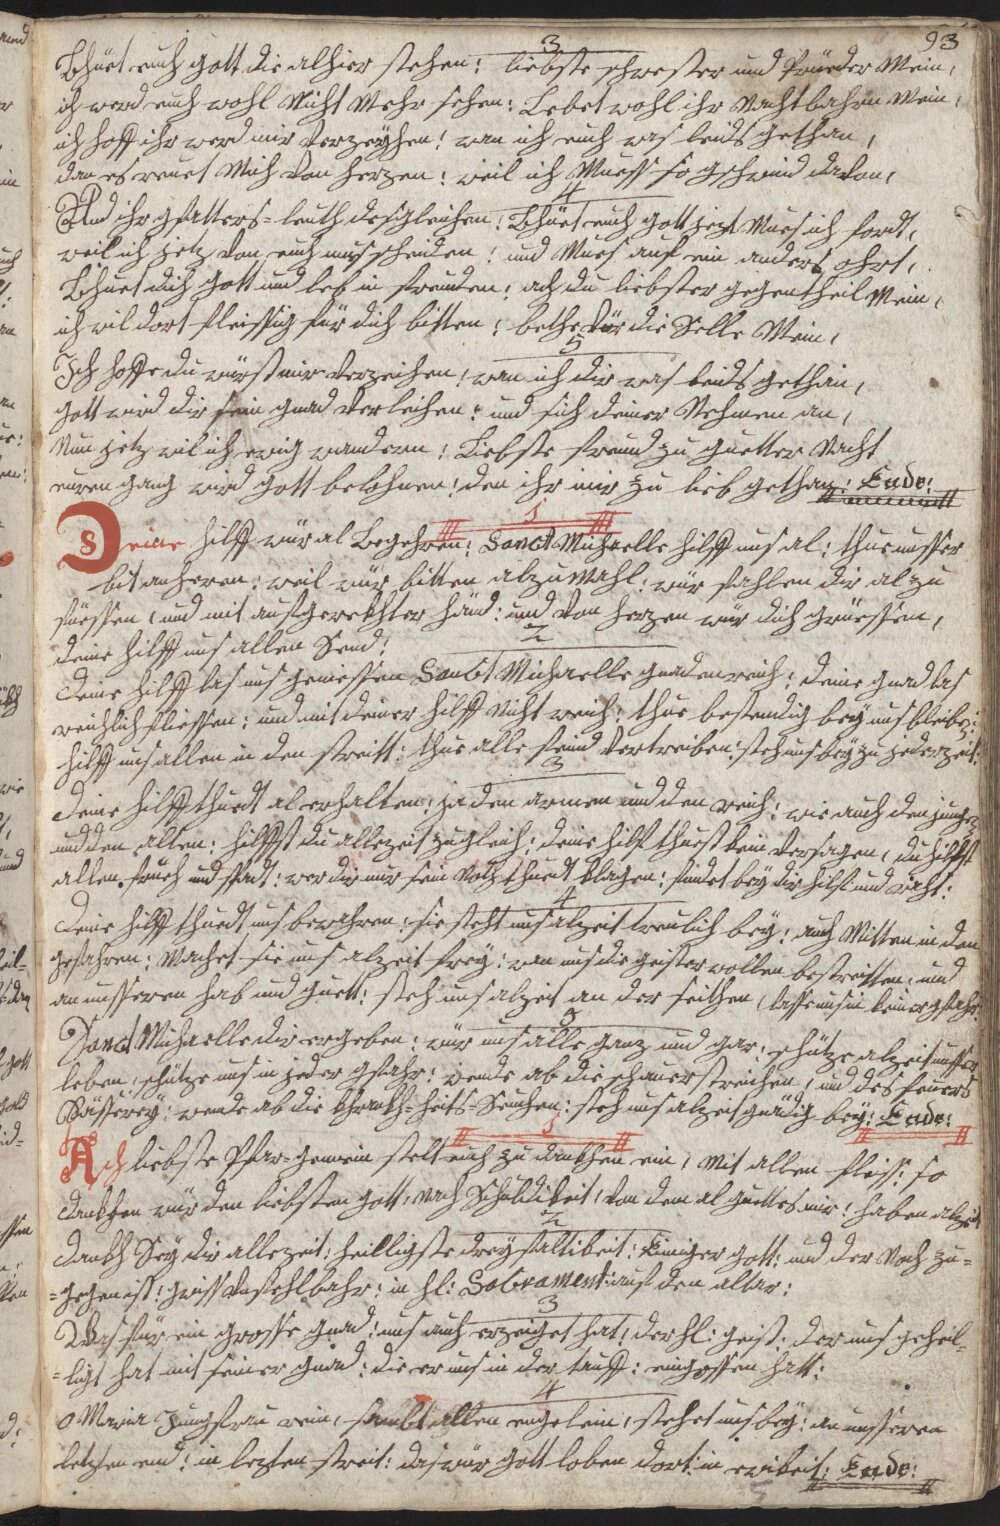 93
3
Bhüet euch gott die alhier stehen: liebste schwester und brüeder Mein,
ich werd euch wohl Nicht Mehr sehen: Lebet wohl ihr Nachtbahrn Mein,
ich hoff ihr werd mir verzeÿhen: wan ich euch was leids gethan,
dan es reuet Mich von herzen: weil ich Muess so gschwind darvon,
4
Und ihr gfatters-leuth desgleichen: Bhüet euch gott jezt Mues ich fordt,
weil ich jetz von euch mus scheiden: und Mues auf ein anders ohrt,
Bhuet dich gott und leb in freuden: ach du liebster gegentheil Mein,
ich wil dort fleissig für dich bitten: bethe vür die Selle Mein,
5
Ich hoffe du würst mir verzeichen: wan ich dir was leids gethan,
gott wird dir sein gnad verleichen: und sich deiner Nehmen an,
Nun jetz wil ich ewig wandern: Liebste freund zu guetter Nacht
euren gang wird gott belohnen: den ihr mir zu lieb gethan: Ende:
1
Deine hilff wür al Begehren: Sanct Michaelle hilff uns al: thue unsser
bit anheren: weil wür bitten alzumahl: wür fahlen dir al zu
füessen, und mit aufgerekhter händ: und von herzen wür dich grüessen,
deine hilff uns allen Send:
2
Deine hilff las uns geniessen Sanct Michaelle gnadenreich: deine gnad las
reichlich fliessen: und mit deiner hilff Nicht weich: thue bestendig beÿ uns bleiben:
hilff uns allen in den streitt: thue alle feind vertreiben: steh uns beÿ zu jederzeit:
3
Deine hilff thuedt al erhalten: ja den armen und den reich: wie auch den jungen
und den alten: hilffst du allezeit zugleich: deine hilf thuest kein versagen, du hilffst
allen frueh und spadt: wer dir nur sein Noth thuedt klagen: findet beÿ dir hilf und raht:
4
Deine hilff thuedt uns bewahren: sie steht uns alzeit treulich beÿ: auch Mitten in den
gefahren: Machet sie uns alzeit freÿ: wan uns die geister wollen bestreitten, und
an unsseren hab und guett: steh uns alzeit an der seithen, lasse uns in keiner gfahr:
5
Sanct Michaelle dir ergeben: wür uns alle ganz und gar: schütze alzeit unsser
leben, schütze uns in jeder gfahr: wende ab die schauerstreichen, und des feuers
Wässereÿ: wende ab die khrankh-heits-Seuchen: steh uns alzeit gnädig beÿ: Ende:
1
Ach liebste Pfar-gemein stelt euch zu dankhen ein, Mit allen fleiss: so
dankhen wür den liebsten gott, Nach Schuldikeit, von dem al guettes wir: haben alzeit
2
Dankh Seÿ dir allezeit: heilligste dreÿfaltikeit: Einiger gott: und der Noch zu-
-gegen ist: gwiss unfehlbahr: in hl: Sacrament: auf den altar:
3
Was für ein grosse gnad: uns auch erzeiget hat: der hl: geist: der uns geheil-
-ligt hat mit seiner gnad: die er uns in der tauff: eingossen hatt:
4
O Maria Jungfrau rein, sambt allen engelein, stehet uns beÿ: an unsseren
letzten end: in lezten streit: das wür gott loben dort: in ewikeit: Ende: